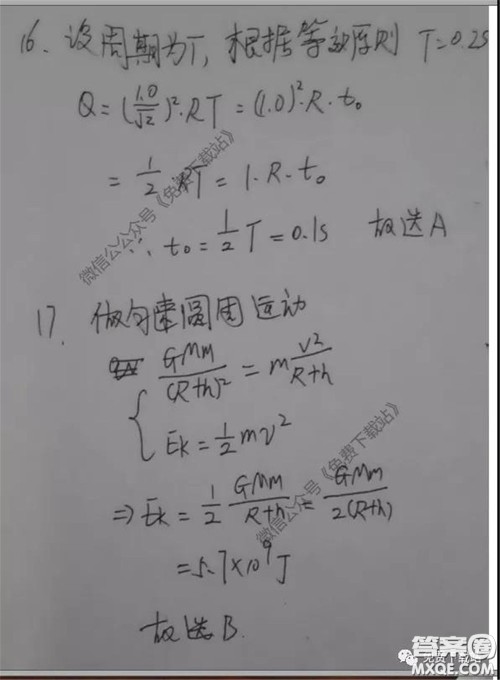 16. 设周期为T, 根据等效原则 T=0.2s
Q=(1.0/√2)²·RT=(1.0)²·R·t₀
=1/2·RT=1·R·t₀
∴ t₀=1/2T=0.1s 故选A
17. 做匀速圆周运动
GMm/(R+h)²=mv²/R+h
Ek=1/2mv²
⇒Ek=1/2 GMm/R+h=GMm/2(R+h)
=5.7×10⁹J
故选B.
微信公众号《免费下载站》
微信公众号《免费下载站》
答案圈
免费下载站
MXQE.COM